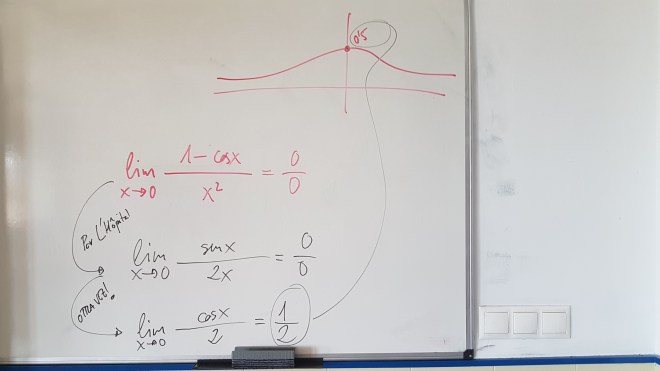 0'5
lim x→0 1-cosx / x² = 0/0
Por L'Hôpital
lim x→0 senx / 2x = 0/0
OTRA VEZ!
lim x→0 cosx / 2 = 1/2